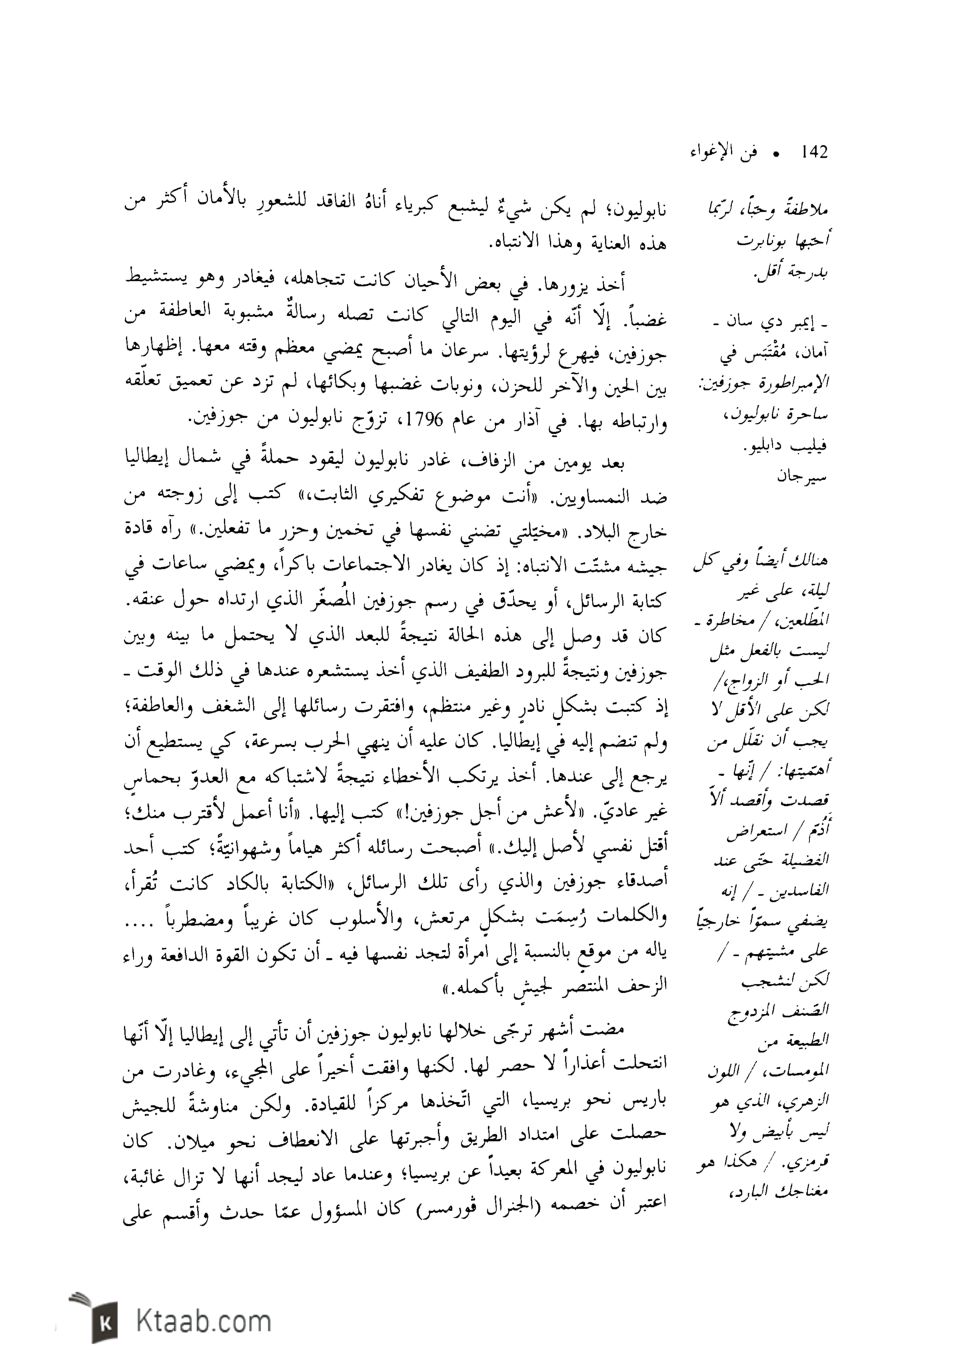 142 • فن الإغواء
نابوليون؛ لم يكن شيءٌ ليشبع كبرياء أناهُ الفاقد للشعورِ بالأمان أكثر من
هذه العناية وهذا الانتباه.
أخذ يزورها. في بعض الأحيان كانت تتجاهله، فيغادر وهو يستشيط
غضباً. إلّا أنّه في اليوم التالي كانت تصله رسالةٌ مشبوبة العاطفة من
جوزفين، فيهرع لرؤيتها. سرعان ما أصبح يمضي معظم وقته معها. إظهارها
بين الحين والآخر للحزن، ونوبات غضبها وبكائها، لم تزد عن تعميق تعلّقه
وارتباطه بها. في آذار من عام 1796، تزوّج نابوليون من جوزفين.
بعد يومين من الزفاف، غادر نابوليون ليقود حملةً في شمال إيطاليا
ضد النمساويين. «أنت موضوع تفكيري الثابت،» كتب إلى زوجته من
خارج البلاد. «مخيّلتي تضني نفسها في تخمين وحزر ما تفعلين.» رآه قادة
جيشه مشتّت الانتباه: إذ كان يغادر الاجتماعات باكراً، ويمضي ساعات في
كتابة الرسائل، أو يحدّق في رسم جوزفين المُصغّر الذي ارتداه حول عنقه.
كان قد وصل إلى هذه الحالة نتيجةً للبعد الذي لا يحتمل ما بينه وبين
جوزفين ونتيجةً للبرود الطفيف الذي أخذ يستشعره عندها في ذلك الوقت ـ
إذ كتبت بشكلٍ نادرٍ وغير منتظم، وافتقرت رسائلها إلى الشغف والعاطفة؛
ولم تنضم إليه في إيطاليا. كان عليه أن ينهي الحرب بسرعة، كي يستطيع أن
يرجع إلى عندها. أخذ يرتكب الأخطاء نتيجةً لاشتباكه مع العدوّ بحماسٍ
غير عاديّ. «لأعش من أجل جوزفين!» كتب إليها. «أنا أعمل لأقترب منك؛
أقتل نفسي لأصل إليك.» أصبحت رسائله أكثر هياماً وشهوانيّةً؛ كتب أحد
أصدقاء جوزفين والذي رأى تلك الرسائل، «الكتابة بالكاد كانت تُقرأ،
والكلمات رُسِمَت بشكلٍ مرتعش، والأسلوب كان غريباً ومضطرباً ....
ياله من موقعٍ بالنسبة إلى امرأة لتجد نفسها فيه ـ أن تكون القوة الدافعة وراء
الزحف المنتصر لجيشٍ بأكمله.»
مضت أشهر ترجّى خلالها نابوليون جوزفين أن تأتي إلى إيطاليا إلّا أنّها
انتحلت أعذاراً لا حصر لها. لكنها وافقت أخيراً على المجيء، وغادرت من
باريس نحو بريسيا، التي اتّخذها مركزاً للقيادة. ولكن مناوشةً للجيش
حصلت على امتداد الطريق وأجبرتها على الانعطاف نحو ميلان. كان
نابوليون في المعركة بعيداً عن بريسيا؛ وعندما عاد ليجد أنها لا تزال غائبة،
اعتبر أن خصمه (الجنرال ڤورمسر) كان المسؤول عمّا حدث وأقسم على
ملاطفةً وحبّاً، لربّما
أحبّها بونابرت
بدرجة أقل.
ـ إيمبر دي سان ـ
آمان، مُقْتَبَس في
الإمبراطورة جوزفين:
ساحرة نابوليون،
فيليب دابليو.
سيرجان
هنالك أيضاً وفي كل
ليلة، على غير
المطّلعين، / مخاطرة ـ
ليست بالفعل مثل
الحب أو الزواج،/
لكن على الأقل لا
يجب أن نقلّل من
أهمّيتها: / إنّها ـ
قصدت وأقصد ألاّ
أَذُمّ / استعراض
الفضيلة حتّى عند
الفاسدين ـ / إنه
يضفي سموّاً خارجيّاً
على مشيتهم ـ /
لكن لنشجب
الصّنف المزدوج
الطبيعة من
المومسات، / اللون
الزهري، الذي هو
ليس بأبيض ولا
قرمزي. / هكذا هو
مغناجك البارد،
Ktaab.com